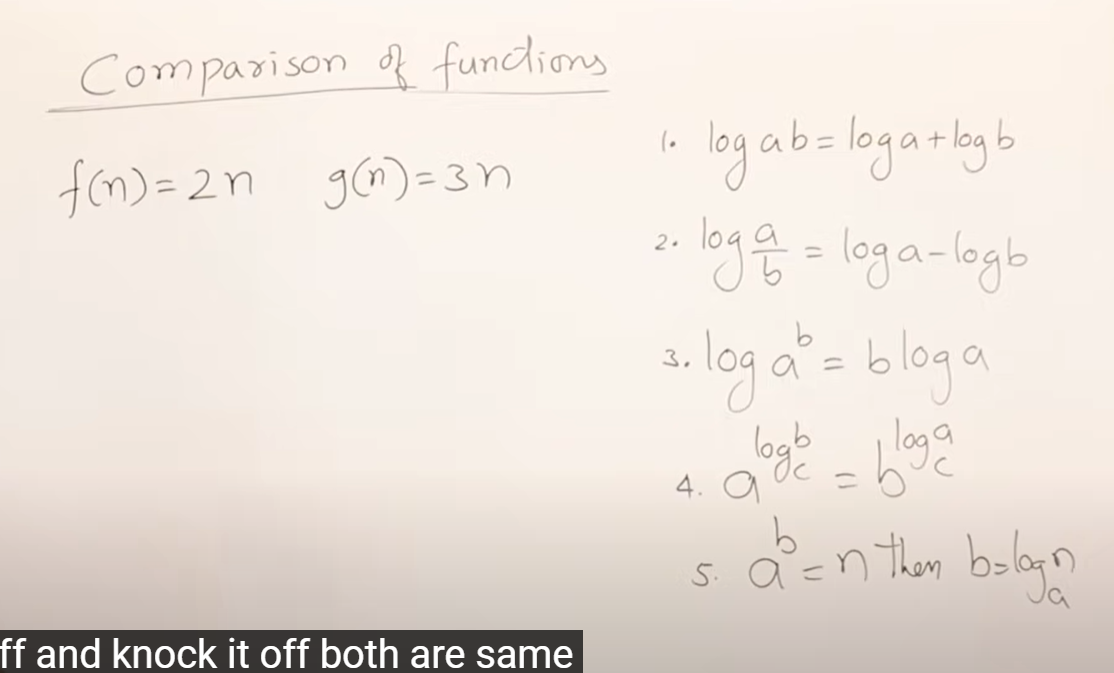 Comparison of functions
f(n) = 2n g(n) = 3n
1. log ab = log a + log b
2. log a/b = log a - log b
3. log a^b = b log a
4. a^(log_c b) = b^(log_c a)
5. a^b = n then b = log_a n
ff and knock it off both are same